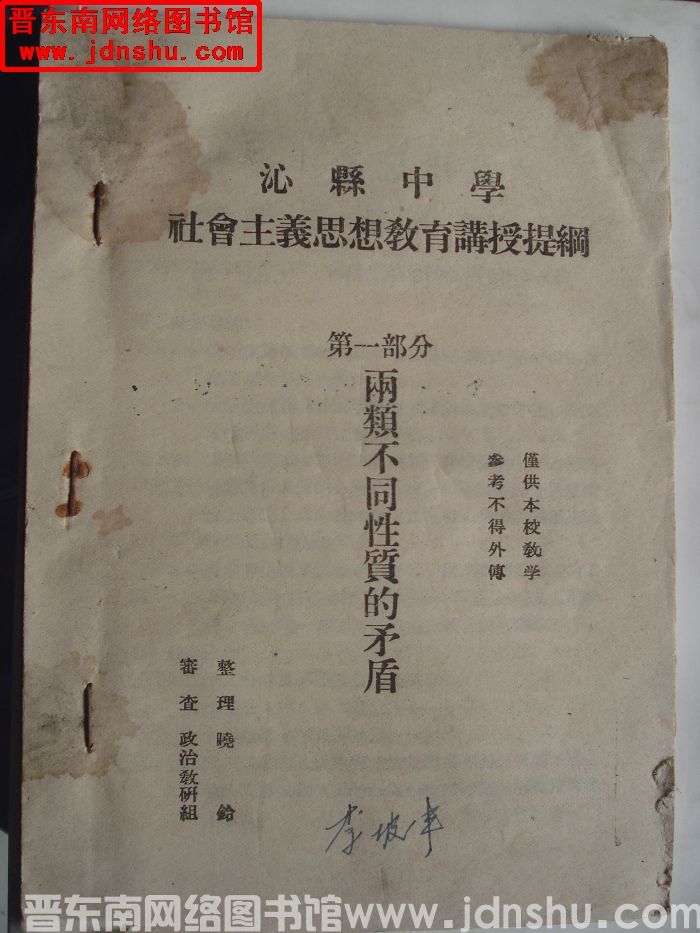 晋东南网络图书馆
www.jdnshu.com
沁縣中學
社會主義思想教育講授提綱
第一部分
兩類不同性質的矛盾
僅供本校教学
参考不得外傳
整理 曉鈴
審查 政治教研組
晋东南网络图书馆www.jdnshu.com